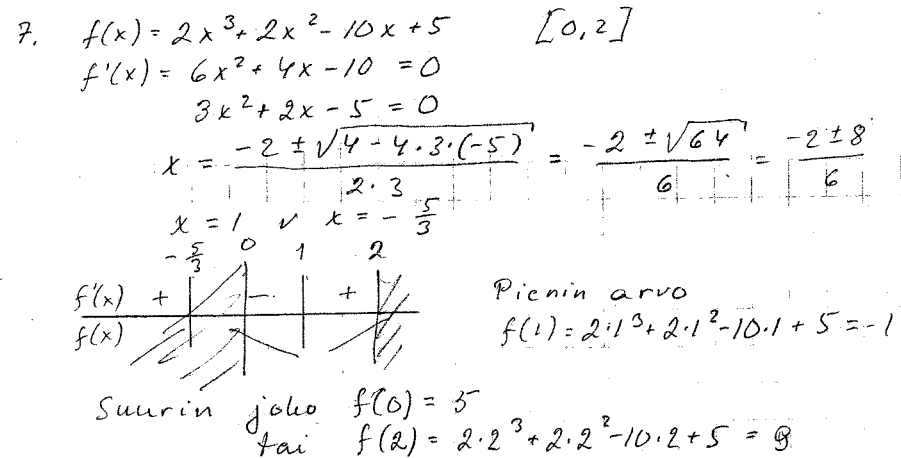 7. f(x) = 2x³ + 2x² - 10x + 5 [0,2]
f'(x) = 6x² + 4x - 10 = 0
3x² + 2x - 5 = 0
x = (-2 ± √(4 - 4·3·(-5)))/(2·3) = (-2 ± √64)/6 = (-2 ± 8)/6
x = 1 ∨ x = -5/3
-5/3 0 1 2
f'(x) + - +
f(x)
Pienin arvo
f(1) = 2·1³ + 2·1² - 10·1 + 5 = -1
Suurin joko f(0) = 5
tai f(2) = 2·2³ + 2·2² - 10·2 + 5 = 9